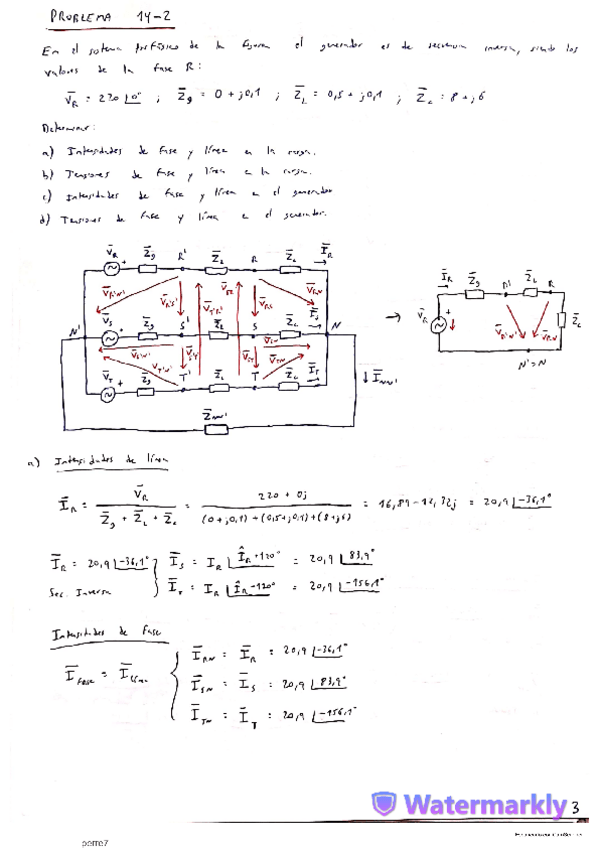 PROBLEMA 14-2
En el sistema trifásico de la figura el generador es de secuencia inversa, siendo los
valores de la fase R:
V̄R = 220 |0° ; Z̄g = 0 + j0,1 ; Z̄L = 0,5 + j0,1 ; Z̄c = 8 + j6
Determinar:
a) Intensidades de fase y línea en la carga.
b) Tensiones de fase y línea en la carga.
c) Intensidades de fase y línea en el generador
d) Tensiones de fase y línea en el generador.
V̄R + Z̄g R' Z̄L R Z̄c ĪR
V̄R'N' V̄R'S' V̄T'R' V̄RS V̄RN
N' V̄S + Z̄g S' Z̄L S Z̄c N
V̄S'N' V̄T'N' V̄TN
V̄T + Z̄g T' Z̄L T Z̄c ĪT
Z̄NN' ↓ĪNN'
→
ĪR Z̄g R' Z̄L R
V̄R + V̄R'N' V̄RN Z̄c
N'=N
a) Intensidades de línea
ĪR = V̄R / (Z̄g + Z̄L + Z̄c) = (220 + 0j) / ((0+j0,1)+(0,5+j0,1)+(8+j6)) = 16,89-12,32j = 20,9 |-36,1°
ĪR = 20,9 |-36,1° } ĪS = IR |ÎR+120° = 20,9 |83,9°
Sec. Inversa ĪT = IR |ÎR-120° = 20,9 |-156,1°
Intensidades de fase
Īfase = Īlínea { ĪRN = ĪR = 20,9 |-36,1°
ĪSN = ĪS = 20,9 |83,9°
ĪTN = ĪT = 20,9 |-156,1°
Watermarkly
3
perre7